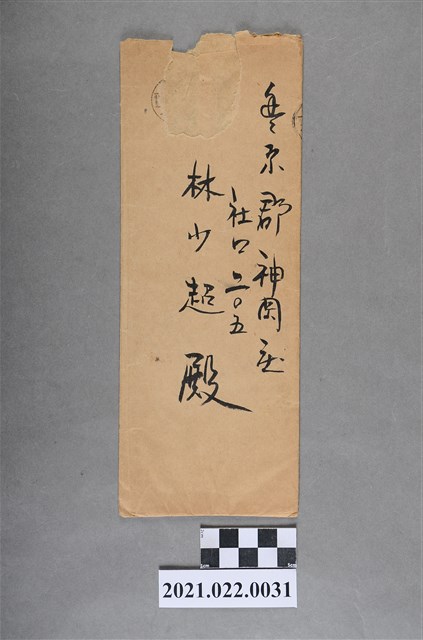 豊原郡神岡庄
社口二〇五
林少超殿
1cm
5cm
2021.022.0031